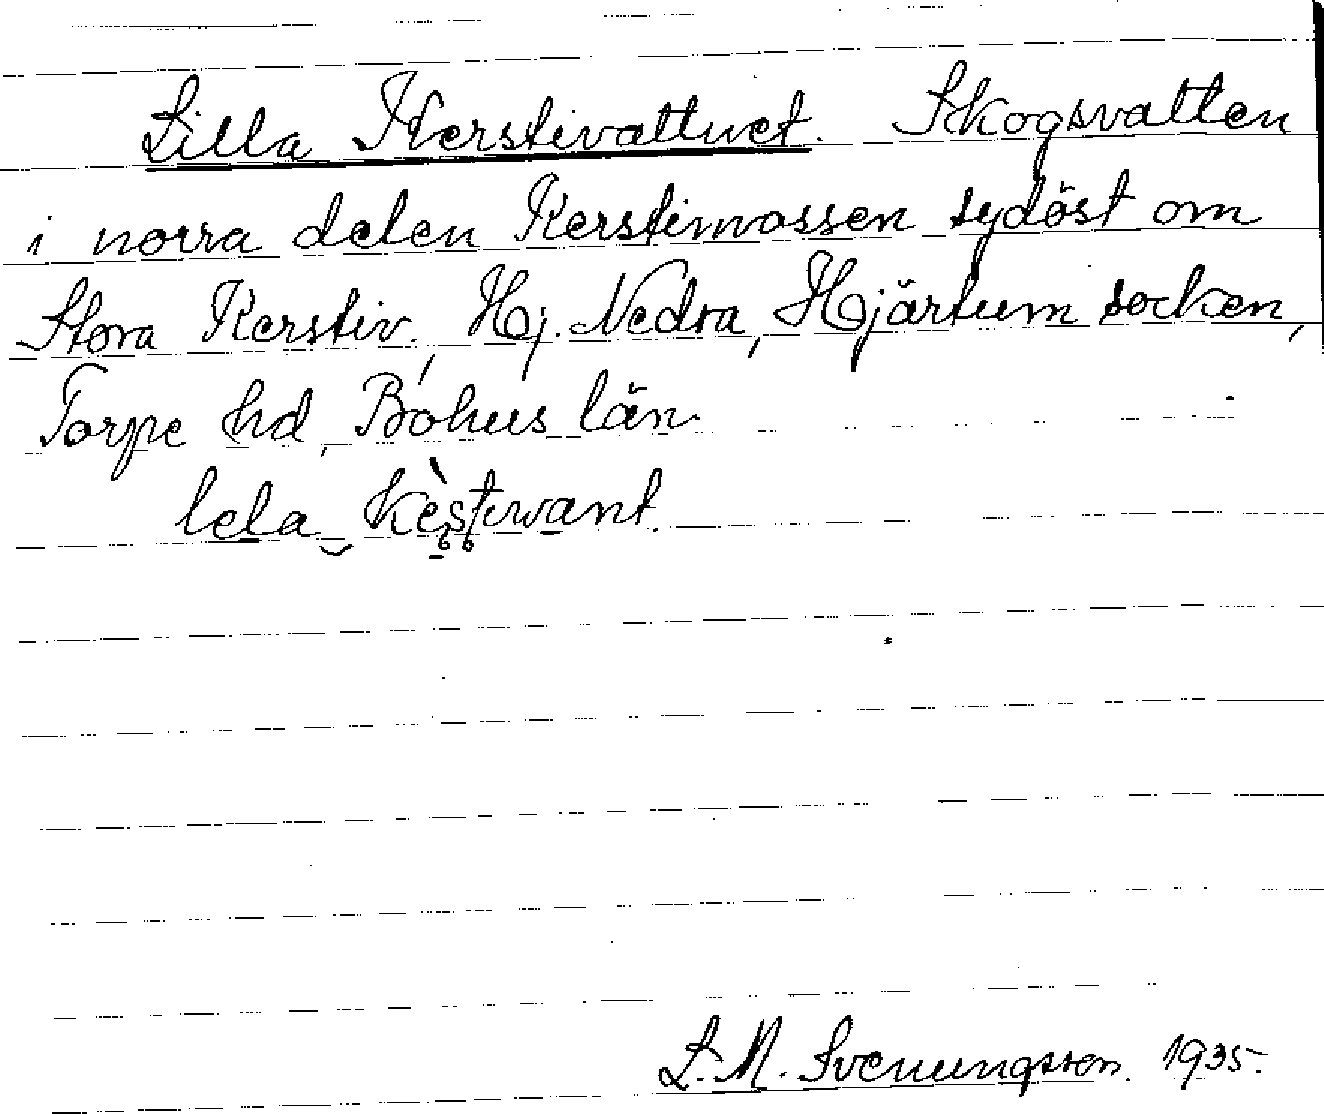 Lilla Kerstivattnet. Skogsvatten
i norra delen Kerstimossen sydöst om
Stora Kerstiv., Hj. Nedra, Hjärtum socken,
Torpe hd, Bohus län.
lela
L. M. Svenungsson. 1935.